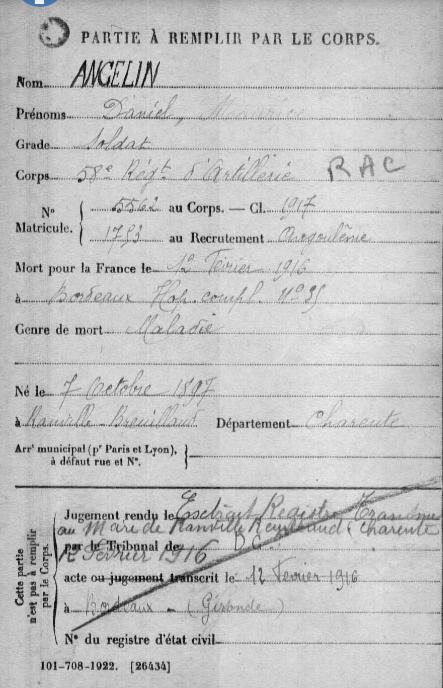 PARTIE À REMPLIR PAR LE CORPS.
Nom ANGELIN
Prénoms Daniel, Maurice
Grade Soldat
Corps 58e Régt d'Artillerie RAC
N° Matricule. { 5562 au Corps. — Cl. 1917
1793 au Recrutement Angoulême
Mort pour la France le 12 février 1916
à Bordeaux Hop. compl. N° 25
Genre de mort Maladie
Né le 7 Octobre 1897
à Ranville Breuillaud Département Charente
Arrt municipal (pr Paris et Lyon), à défaut rue et N°. }
Cette partie n'est pas à remplir par le Corps.
Jugement rendu le Extrait Registre
au Maire de Ranville Charente
par le Tribunal de D.C.
12 Février 1916
acte ou jugement transcrit le 12 février 1916
à Bordeaux - (Gironde)
N° du registre d'état civil
101-708-1922. [26434]